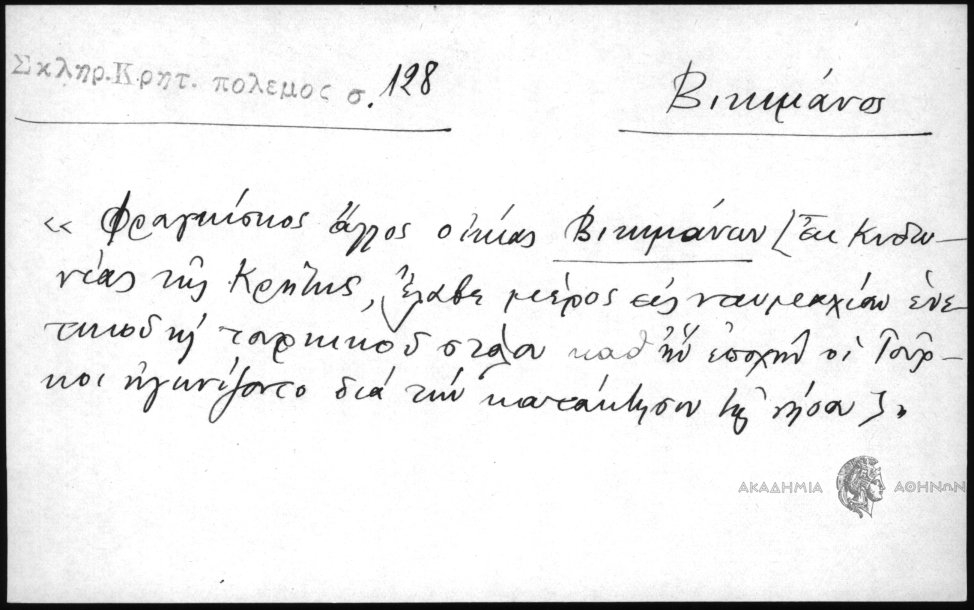 Σκληρ.Κρητ. πολεμος σ. 128
Βικιμάνος
« Φραγκίσκος ἄλλος οἰκίας Βικιμάνων [Ἐκ Κυδω-
νέας τῆς Κρήτης, ἔλαβε μέρος εἰς ναυμαχίαν ἐνε-
τικοῦ κ τουρκικοῦ στόλου καθ ἥν ἐποχήν οἱ Τοῦρ-
κοι ἠγωνίζοντο διά τήν κατάκτησιν τῆς νήσου]»
ΑΚΑΔΗΜΙΑ ΑΘΗΝΩΝ